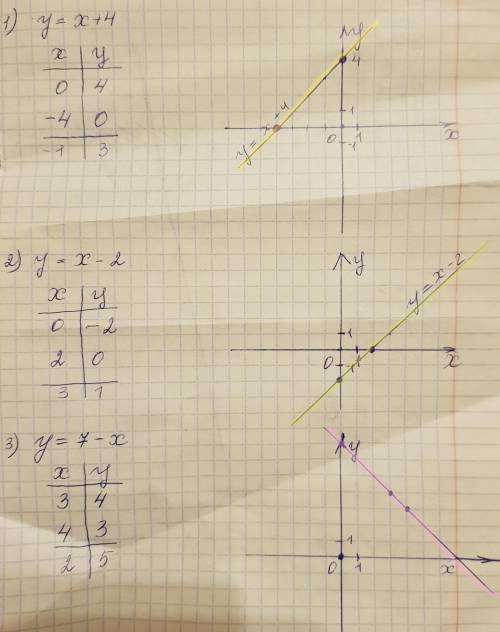 1) y = x+4
x y
0 4
-4 0
-1 3
y
4
y = x+4
1
0 1
-1
x
2) y = x - 2
x y
0 -2
2 0
3 1
y
y = x-2
1
0 1
-1
x
3) y = 7 - x
x y
3 4
4 3
2 5
y
1
0 1
x